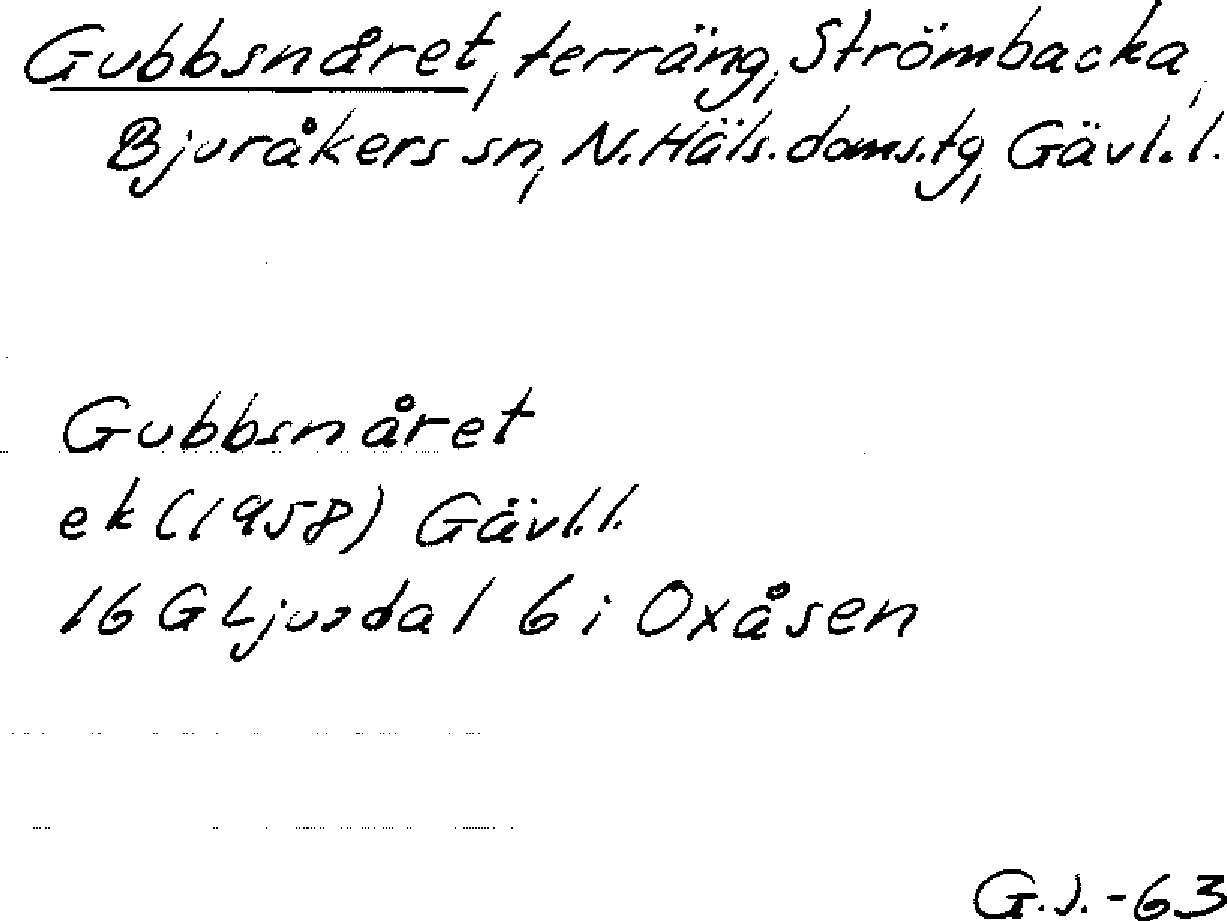 Gubbsnåret, terräng, Strömbacka,
Bjuråkers sn, N. Häls. doms.tg, Gävl.l.
Gubbsnåret
ek (1958) Gävl.l.
16 G Ljusdal 6 i Oxåsen
G.J. -63